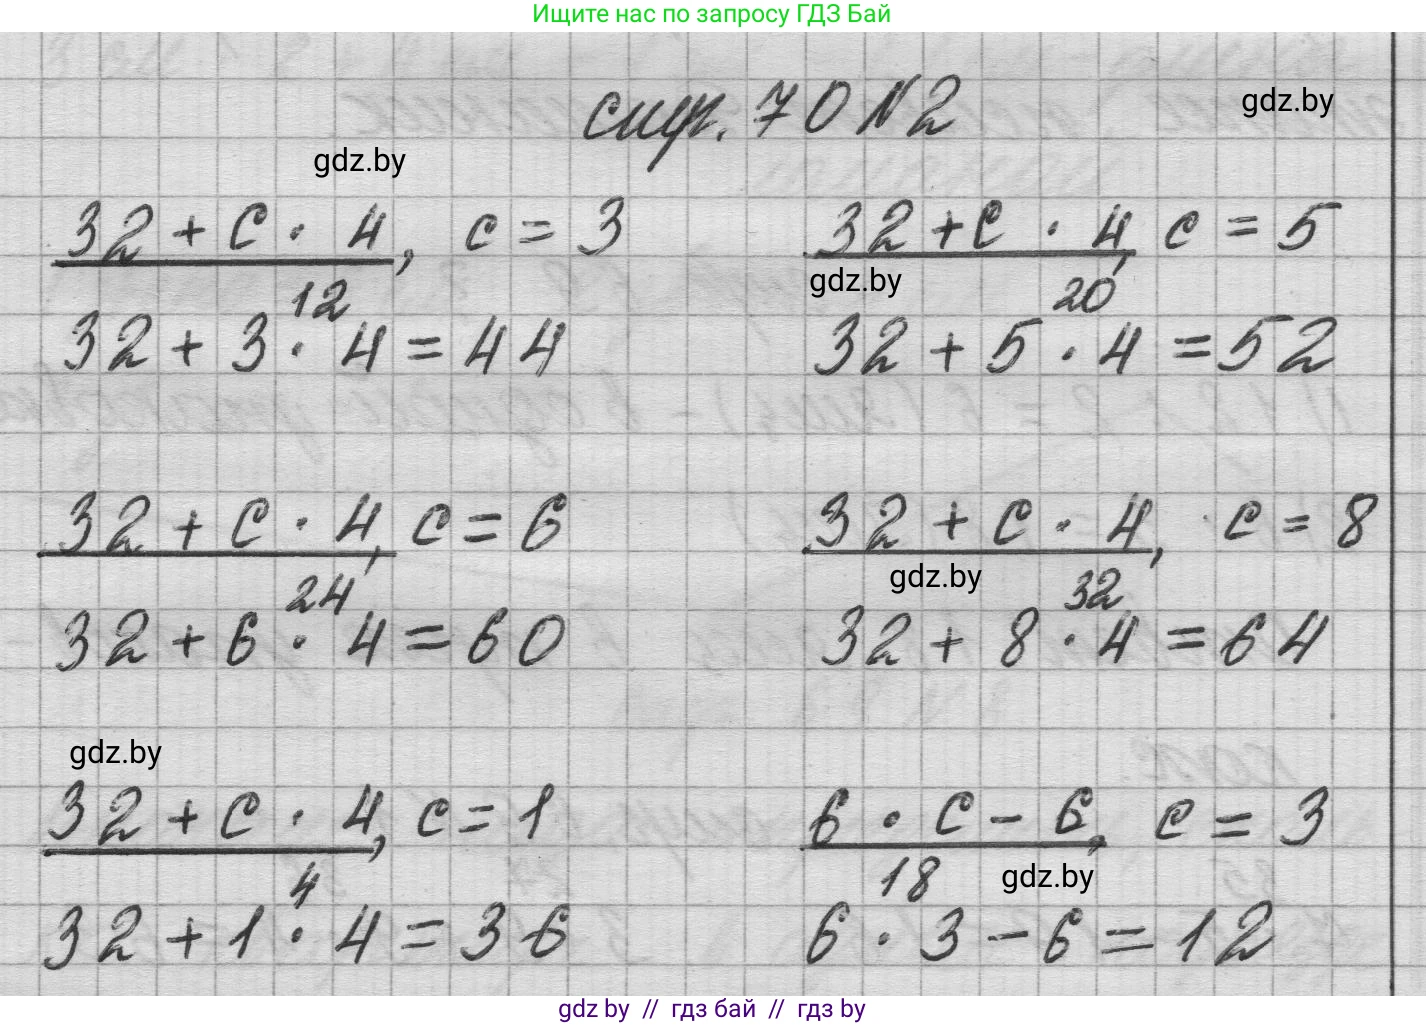 Ищите нас по запросу ГДЗ Бай
стр. 70 №2
gdz.by
gdz.by
32 + c · 4, c = 3
32 + c · 4, c = 5
gdz.by
12
20
32 + 3 · 4 = 44
32 + 5 · 4 = 52
32 + c · 4, c = 6
32 + c · 4, c = 8
gdz.by
24
32
32 + 6 · 4 = 60
32 + 8 · 4 = 64
gdz.by
32 + c · 4, c = 1
6 · c - 6, c = 3
gdz.by
4
18
32 + 1 · 4 = 36
6 · 3 - 6 = 12
gdz by // гдз бай // гдз by